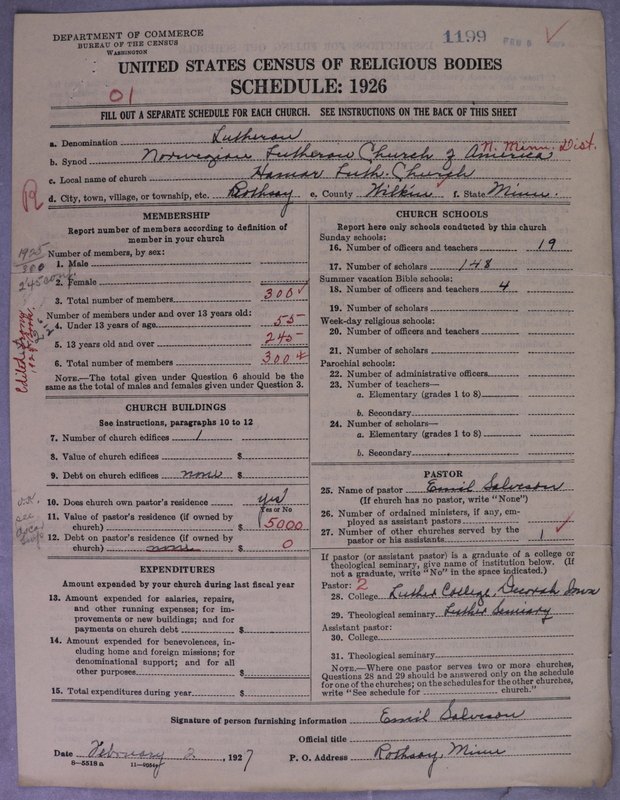 DEPARTMENT OF COMMERCE
BUREAU OF THE CENSUS
WASHINGTON
1199 FEB 8
UNITED STATES CENSUS OF RELIGIOUS BODIES
SCHEDULE: 1926
01
FILL OUT A SEPARATE SCHEDULE FOR EACH CHURCH. SEE INSTRUCTIONS ON THE BACK OF THIS SHEET
a. Denomination Lutheran
b. Synod Norwegian Lutheran Church of America N. Minn. Dist.
c. Local name of church Hamar Luth. Church
d. City, town, village, or township, etc. Rothsay e. County Wilkin f. State Minn.
R
MEMBERSHIP
Report number of members according to definition of
member in your church
1925
300
245
Number of members, by sex:
1. Male
2. Female
3. Total number of members 300
Number of members under and over 13 years old:
4. Under 13 years of age 55
5. 13 years old and over 245
6. Total number of members 300
NOTE.—The total given under Question 6 should be the
same as the total of males and females given under Question 3.
CHURCH BUILDINGS
See instructions, paragraphs 10 to 12
7. Number of church edifices 1
8. Value of church edifices $
9. Debt on church edifices none $
10. Does church own pastor's residence yes
Yes or No
11. Value of pastor's residence (if owned by
church) $ 5000
12. Debt on pastor's residence (if owned by
church) none $ 0
EXPENDITURES
Amount expended by your church during last fiscal year
13. Amount expended for salaries, repairs,
and other running expenses; for im-
provements or new buildings; and for
payments on church debt $
14. Amount expended for benevolences, in-
cluding home and foreign missions; for
denominational support; and for all
other purposes $
15. Total expenditures during year $
CHURCH SCHOOLS
Report here only schools conducted by this church
Sunday schools:
16. Number of officers and teachers 19
17. Number of scholars 148
Summer vacation Bible schools:
18. Number of officers and teachers 4
19. Number of scholars
Week-day religious schools:
20. Number of officers and teachers
21. Number of scholars
Parochial schools:
22. Number of administrative officers
23. Number of teachers—
a. Elementary (grades 1 to 8)
b. Secondary
24. Number of scholars—
a. Elementary (grades 1 to 8)
b. Secondary
PASTOR
25. Name of pastor Emil Salveson
(If church has no pastor, write "None")
26. Number of ordained ministers, if any, em-
ployed as assistant pastors
27. Number of other churches served by the
pastor or his assistants 1
If pastor (or assistant pastor) is a graduate of a college or
theological seminary, give name of institution below. (If
not a graduate, write "No" in the space indicated.)
Pastor: 2
28. College Luther College, Decorah Iowa
29. Theological seminary Luther Seminary
Assistant pastor:
30. College
31. Theological seminary
NOTE.—Where one pastor serves two or more churches,
Questions 28 and 29 should be answered only on the schedule
for one of the churches; on the schedules for the other churches,
write "See schedule for church."
Signature of person furnishing information Emil Salveson
Official title
Date February 2, 1927 P. O. Address Rothsay, Minn
8—5518 a